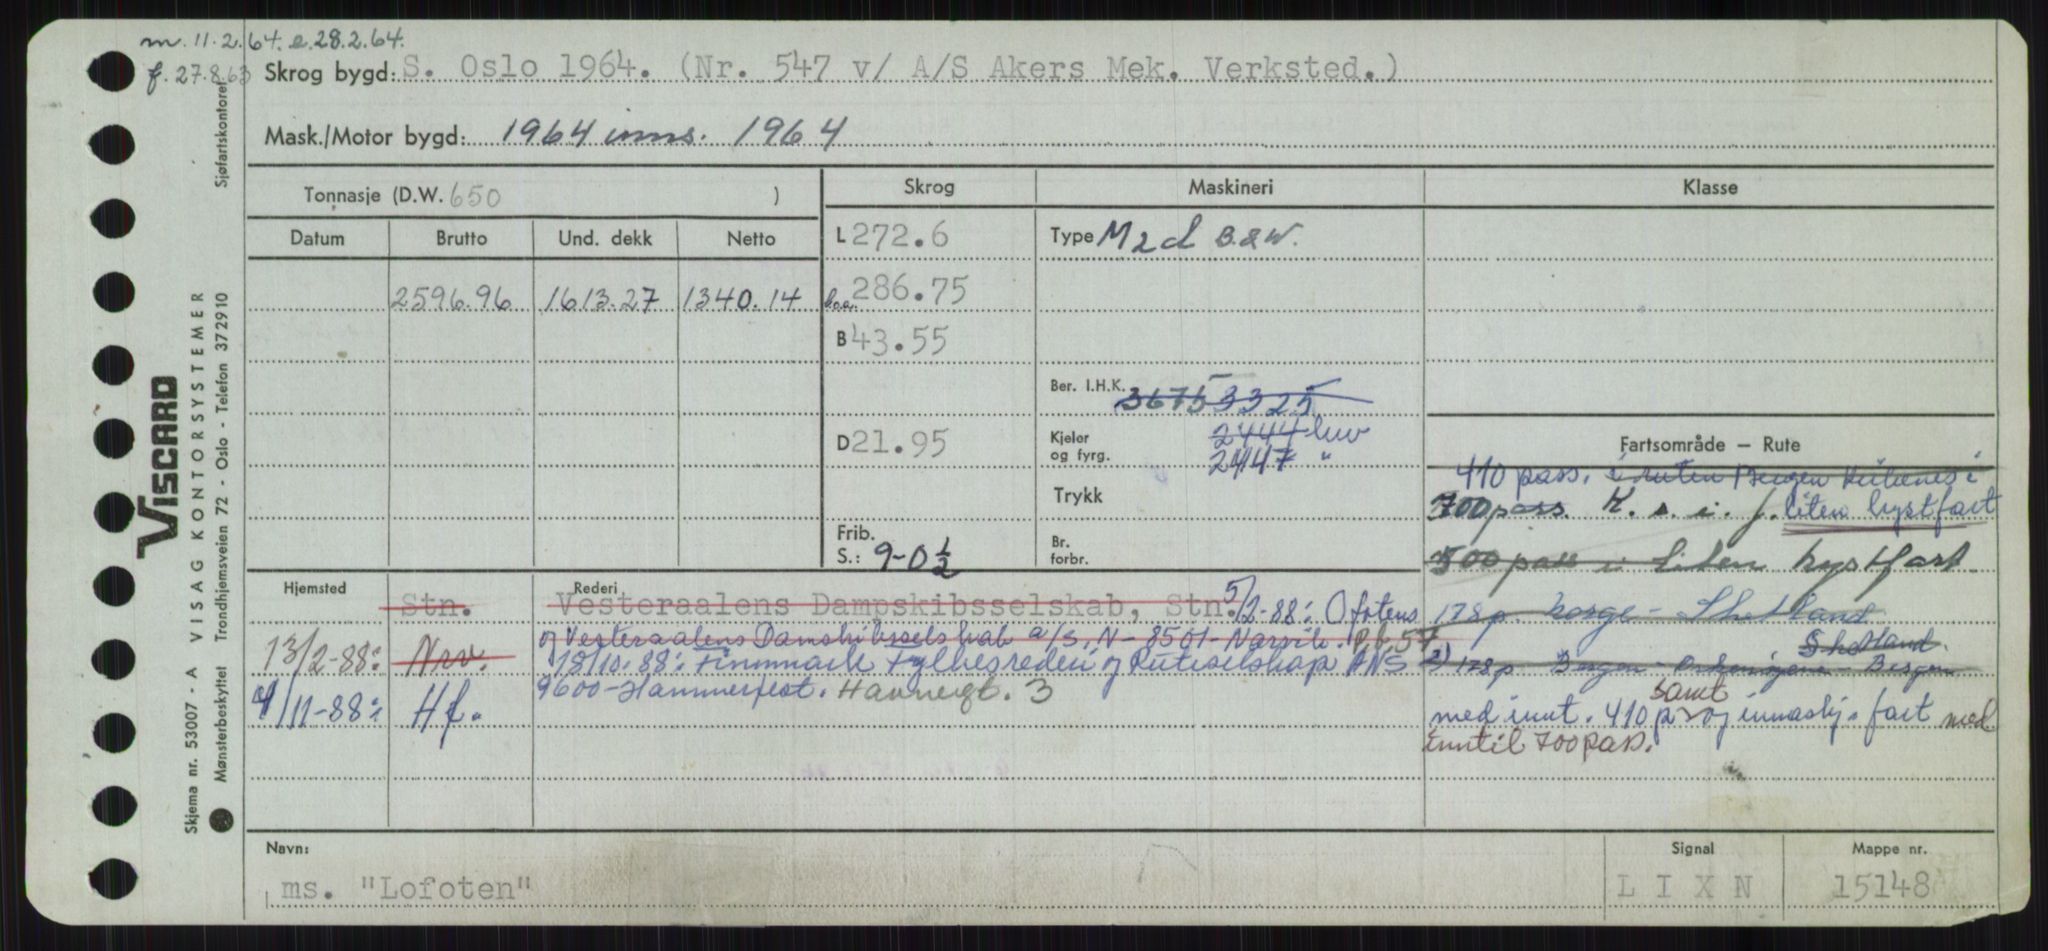 m. 11.2.64. e.28.2.64.
f. 27.8.63
Skrog bygd: S. Oslo 1964. (Nr. 547 v/ A/S Akers Mek. Verksted.)
Mask./Motor bygd: 1964 inns. 1964
Tonnasje (D.W. 650 )
Skrog
Maskineri
Klasse
Datum
Brutto
Und. dekk
Netto
2596.96
1613.27
1340.14
L 272.6
l.o.a. 286.75
B 43.55
D 21.95
Frib.
S.: 9-0½
Type M2d B.&W.
Ber. I.H.K. 3675 3325
Kjeler
og fyrg.
2444 luv
2447 "
Trykk
Br.
forbr.
Fartsområde – Rute
410 pass. i ruten Bergen Kirkenes i
700 pass. K. s. i. f. liten kystfart
500 pass i liten kystfart
178 p. Norge - Shetland
Shetland
178 p. Bergen - Orknöyene - Bergen
samt
med innt. 410 p og innaskj. fart med
inntil 700 pass.
Hjemsted
Rederi
Stn.
Vesteraalens Dampskibsselskab, Stn. 5/2-88: Ofotens
13/2-88: Nrv.
og Vesteraalens Dampskibsselskab a/s, N-8501-Narvik. Pb. 57
18/10-88: Finnmark Fylkesrederi og Ruteselskap ANS
9600-Hammerfest. Havnegt. 3
4/11-88: Hf.
Navn:
ms. "Lofoten"
Signal
LIXN
Mappe nr.
15148
VISCARD
VISAG KONTORSYSTEMER
Sjøfartskontoret
Skjema nr. 53007 - A
Mønsterbeskyttet Trondhjemsveien 72 - Oslo - Telefon 372910